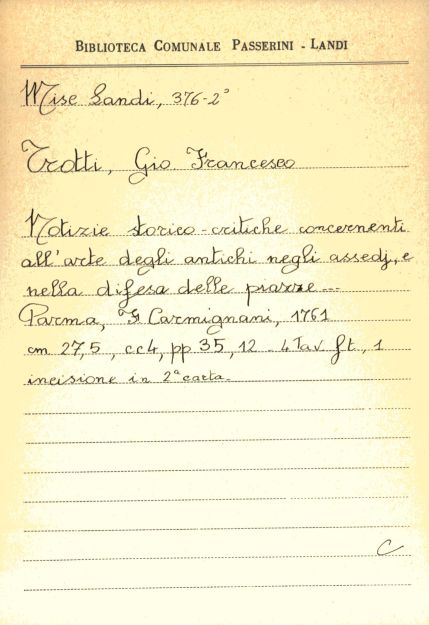 BIBLIOTECA COMUNALE PASSERINI - LANDI
Misc Landi, 376-2°
Trotti, Gio. Francesco
Notizie storico-critiche concernenti
all'arte degli antichi negli assedj, e
nella difesa delle piazze...
Parma, F. Carmignani, 1761
cm 27,5, cc 4, pp 35, 12 - 4 Tav f.t., 1
incisione in 2ª carta.
C